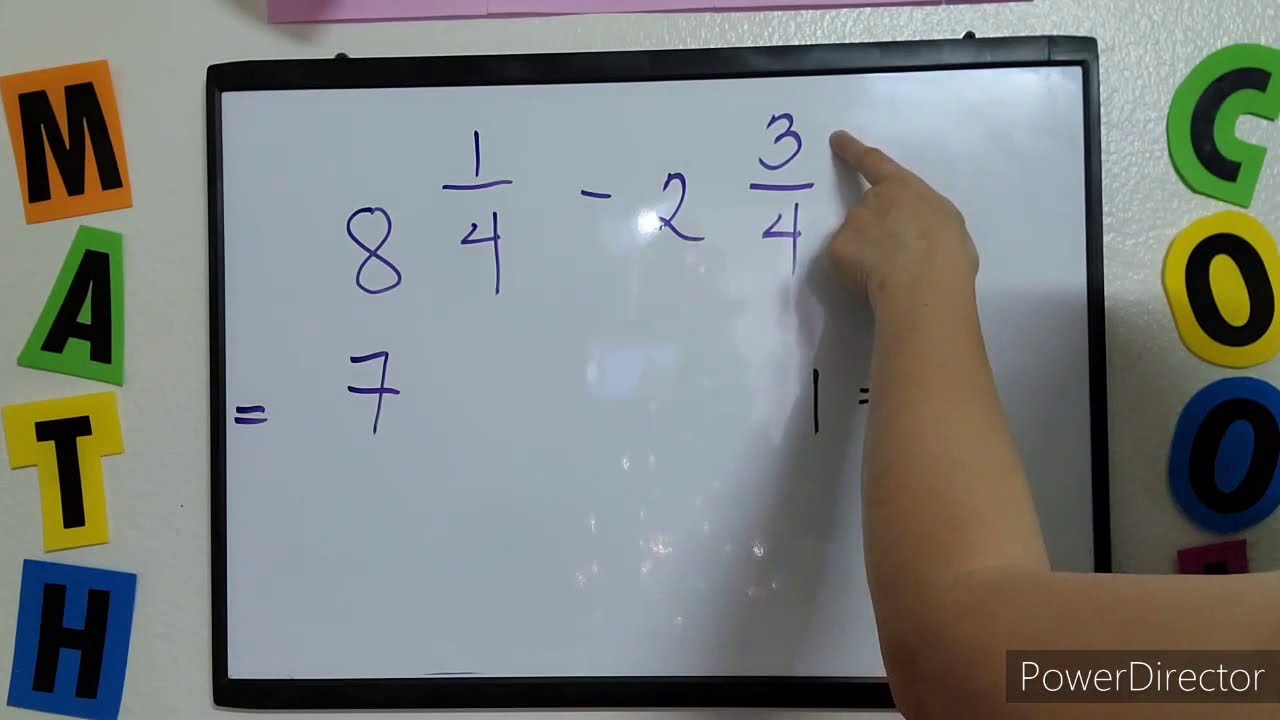 MATH
8 1/4 - 2 3/4
= 7
1 =
COO
PowerDirector